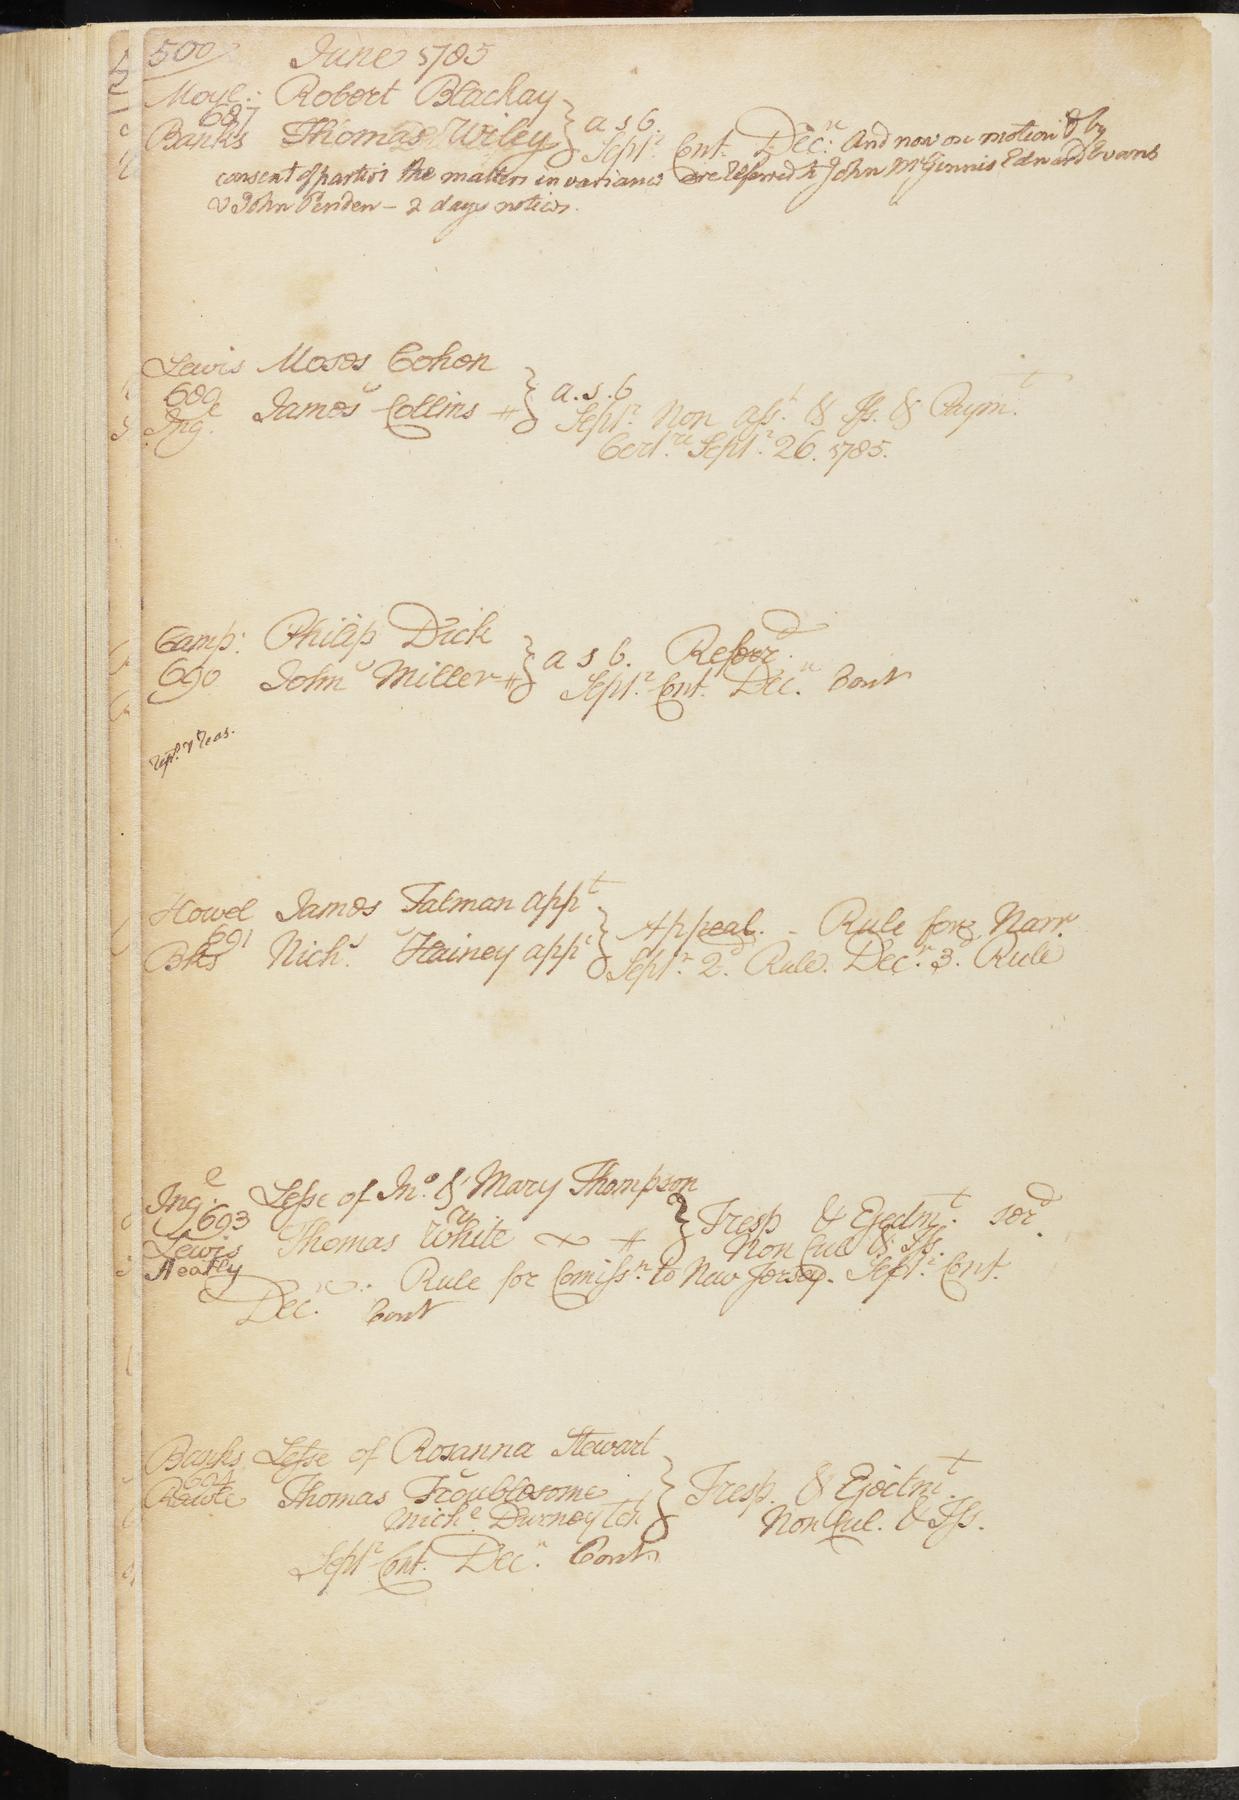 500 June 1785
Moyl: Robert Blackay
687
Banks Thomas Wiley } a s b
Sept.r Cont. Dec.r And now on motion & by
consent of parties the matters in variance are referred to John McGinnis Edward Evans
& John Penden – 2 days notice.
Lewis Moses Cohon
689 a.s.b
Ing. James Collins + } Sept.r Non ass.t & Iss. & Paym.t
Cert.re Sept.r 26. 1785.
Camp: Philip Dick
690 John Miller + } a s b. Referr.d
Sept.r Cont. Dec.r Cont
Howel James Talman app.t
691 } Appeal. - Rule for Narr.
Bks Nich.s Hainey app.e Sept.r 2.d Rule. Dec.r 3.d Rule
Ing.e Lesse of Jn.o & Mary Thompson
693 } Tresp & Ejectm.t ser.d
Lewis Thomas White + Non Cul & Iss.
Heatly Rule for Comiss.n to New Jersey. Sept.r Cont.
Dec.r Cont
Banks Lesse of Rosanna Stewart
694
Rawle Thomas Troublesome } Tresp. & Ejectm.t
Mich.l Durney Non Cul. & Iss.
Sept.r Cont. Dec.r Cont